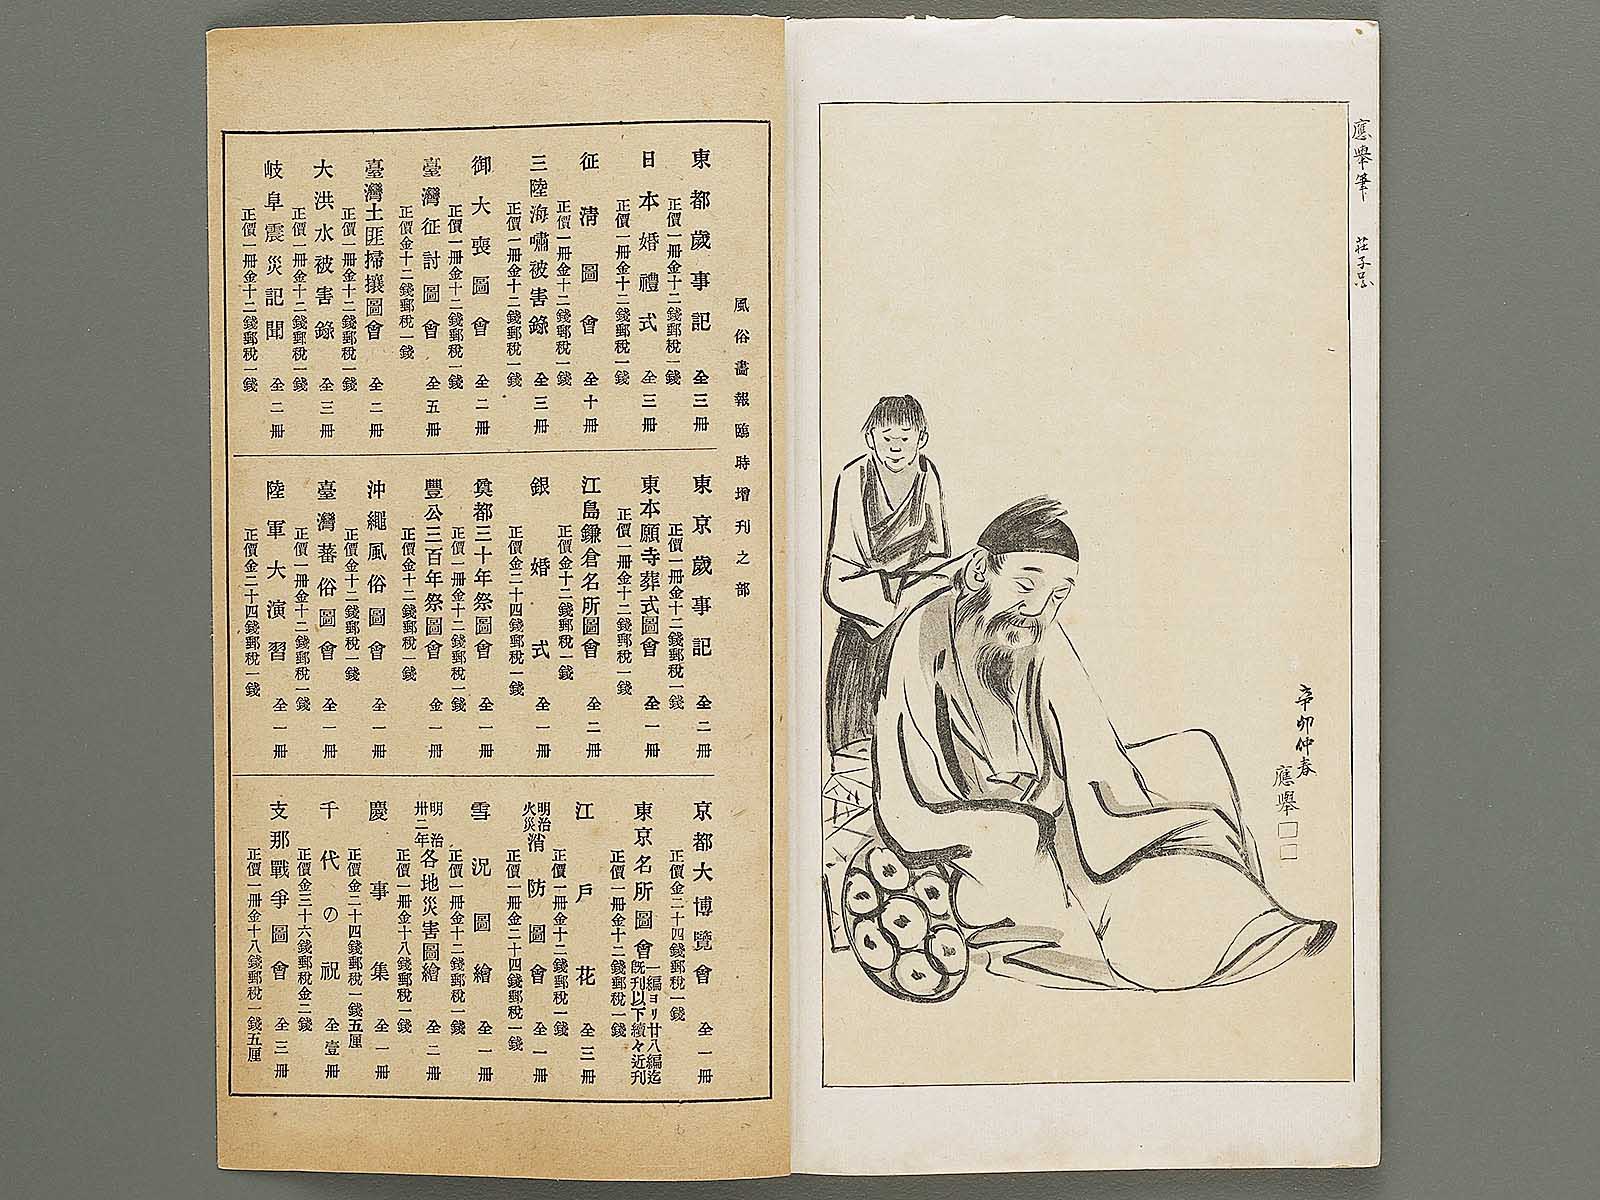 應舉筆 莊子
辛卯仲春
應舉
風俗畫報臨時增刊之部
東都歲事記 全三冊
正價一冊金十二錢郵稅一錢
日本婚禮式 全三冊
正價一冊金十二錢郵稅一錢
征清圖會 全十冊
正價一冊金十二錢郵稅一錢
三陸海嘯被害錄 全三冊
正價一冊金十二錢郵稅一錢
御大喪圖會 全二冊
正價一冊金十二錢郵稅一錢
臺灣征討圖會 全五冊
正價金十二錢郵稅一錢
臺灣土匪掃攘圖會 全二冊
正價一冊金十二錢郵稅一錢
大洪水被害錄 全三冊
正價一冊金十二錢郵稅一錢
岐阜震災記聞 全二冊
正價一冊金十二錢郵稅一錢
東京歲事記 全二冊
正價一冊金十二錢郵稅一錢
東本願寺葬式圖會 全一冊
正價一冊金十二錢郵稅一錢
江島鎌倉名所圖會 全二冊
正價金十二錢郵稅一錢
銀婚式 全一冊
正價金二十四錢郵稅一錢
奠都三十年祭圖會 全一冊
正價一冊金十二錢郵稅一錢
豐公三百年祭圖會 金一冊
正價金十二錢郵稅一錢
沖繩風俗圖會 全一冊
正價金十二錢郵稅一錢
臺灣蕃俗圖會 全一冊
正價一冊金十二錢郵稅一錢
陸軍大演習 全一冊
正價金二十四錢郵稅一錢
京都大博覽會 全一冊
正價金二十四錢郵稅一錢
東京名所圖會 一編ヨリ廿八編迄既刊以下續々近刊
正價一冊金十二錢郵稅一錢
江戶花 全三冊
正價一冊金十二錢郵稅一錢
明治火災消防圖會 全一冊
正價一冊金二十四錢郵稅一錢
雪況圖繪 全一冊
正價一冊金十二錢郵稅一錢
明治卅二年各地災害圖繪 全二冊
正價一冊金十八錢郵稅一錢
慶事集 全一冊
正價金二十四錢郵稅一錢五厘
千代の祝 全壹冊
正價金三十六錢郵稅金二錢
支那戰爭圖會 全三冊
正價一冊金十八錢郵稅一錢五厘